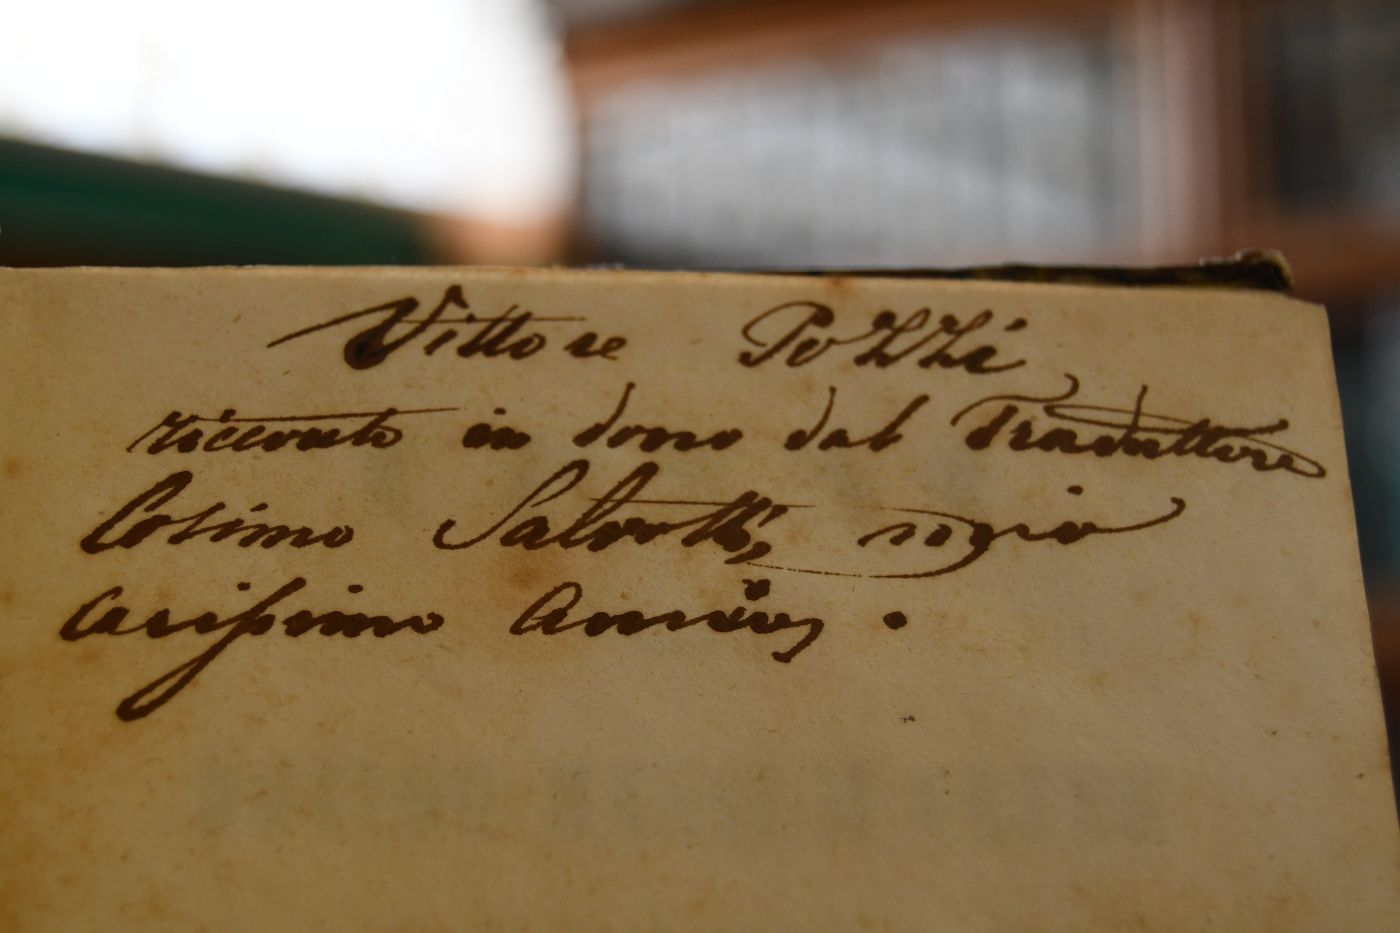 Vittore Pozzi
riccevuto in dono dal Traduttore
Cosimo
carissimo Amico.